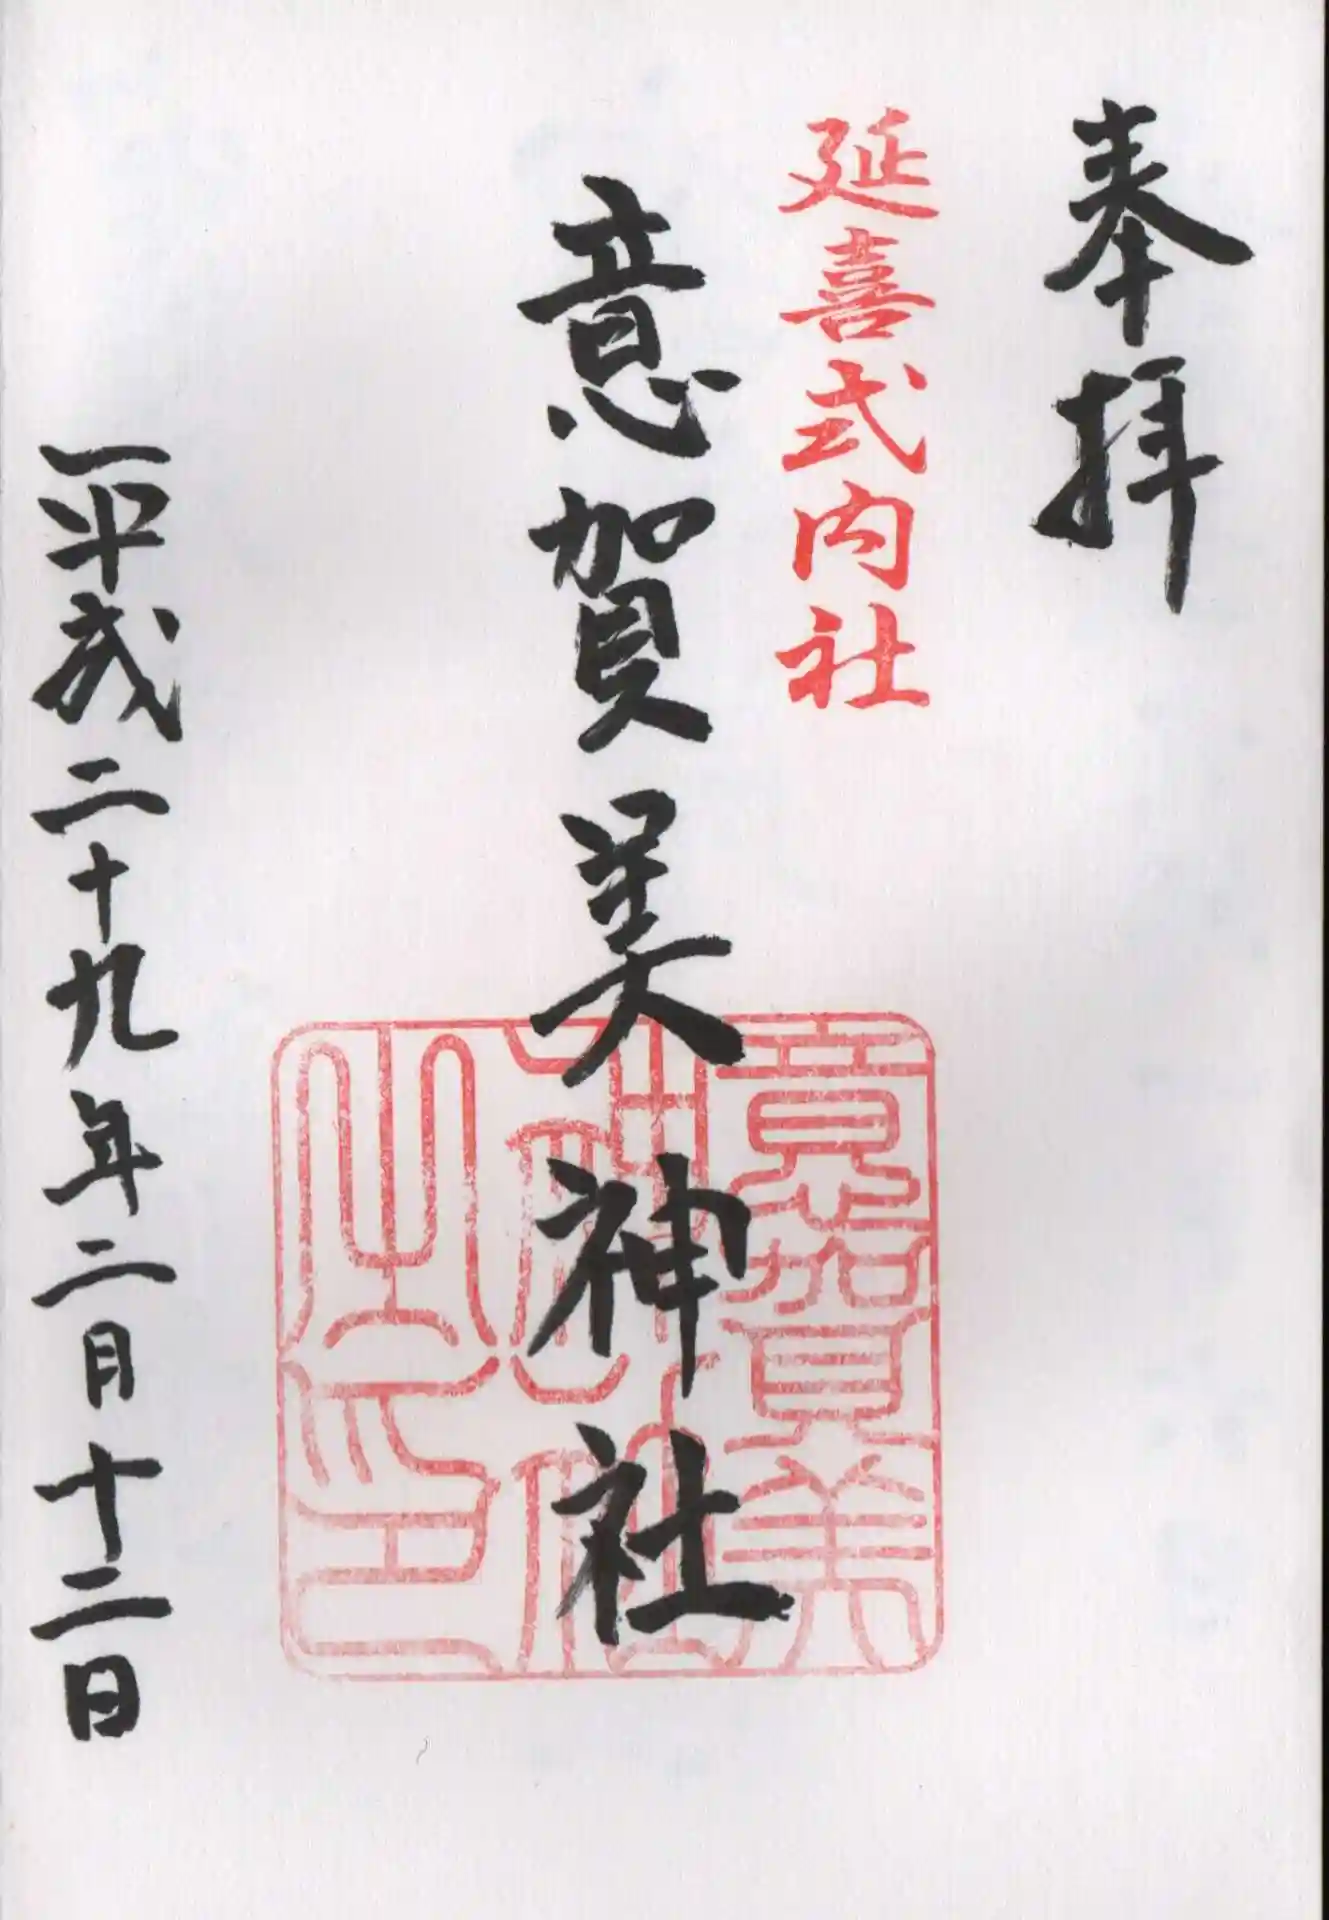 奉拝
延喜式内社
意賀美神社
意賀美
神社
之印
平成二十九年二月十二日